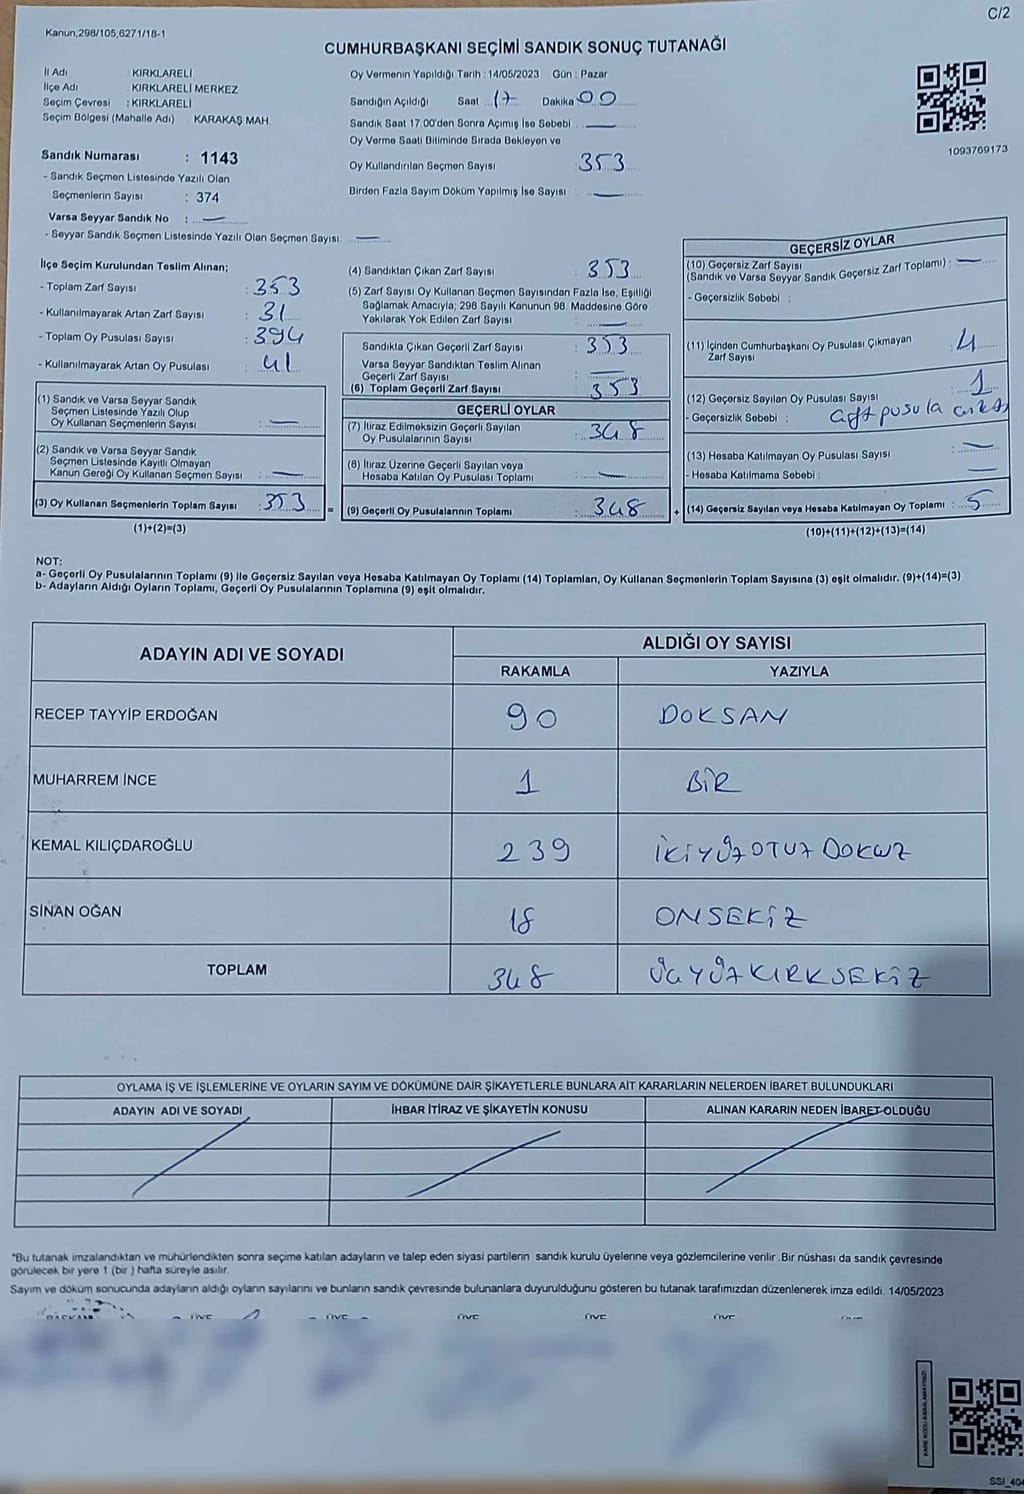 C/2
Kanun,298/105,6271/18-1
CUMHURBAŞKANI SEÇİMİ SANDIK SONUÇ TUTANAĞI
İl Adı : KIRKLARELİ
İlçe Adı : KIRKLARELİ MERKEZ
Seçim Çevresi : KIRKLARELİ
Seçim Bölgesi (Mahalle Adı) : KARAKAŞ MAH.
Sandık Numarası : 1143
- Sandık Seçmen Listesinde Yazılı Olan
Seçmenlerin Sayısı : 374
Varsa Seyyar Sandık No : —
- Seyyar Sandık Seçmen Listesinde Yazılı Olan Seçmen Sayısı: —
Oy Vermenin Yapıldığı Tarih : 14/05/2023 Gün : Pazar
Sandığın Açıldığı Saat 17 Dakika 00
Sandık Saat 17.00'den Sonra Açımış İse Sebebi —
Oy Verme Saati Bitiminde Sırada Bekleyen ve
Oy Kullandırılan Seçmen Sayısı 353
Birden Fazla Sayım Döküm Yapılmış İse Sayısı —
1093769173
İlçe Seçim Kurulundan Teslim Alınan;
- Toplam Zarf Sayısı : 353
- Kullanılmayarak Artan Zarf Sayısı : 31
- Toplam Oy Pusulası Sayısı : 394
- Kullanılmayarak Artan Oy Pusulası : 41
(1) Sandık ve Varsa Seyyar Sandık
Seçmen Listesinde Yazılı Olup
Oy Kullanan Seçmenlerin Sayısı : —
(2) Sandık ve Varsa Seyyar Sandık
Seçmen Listesinde Kayıtlı Olmayan
Kanun Gereği Oy Kullanan Seçmen Sayısı : —
(3) Oy Kullanan Seçmenlerin Toplam Sayısı : 353
(1)+(2)=(3)
=
(4) Sandıktan Çıkan Zarf Sayısı : 353
(5) Zarf Sayısı Oy Kullanan Seçmen Sayısından Fazla İse, Eşitliği
Sağlamak Amacıyla; 298 Sayılı Kanunun 98. Maddesine Göre
Yakılarak Yok Edilen Zarf Sayısı : —
Sandıkta Çıkan Geçerli Zarf Sayısı : 353
Varsa Seyyar Sandıktan Teslim Alınan
Geçerli Zarf Sayısı : —
(6) Toplam Geçerli Zarf Sayısı : 353
GEÇERLİ OYLAR
(7) İtiraz Edilmeksizin Geçerli Sayılan
Oy Pusulalarının Sayısı : 348
(8) İtiraz Üzerine Geçerli Sayılan veya
Hesaba Katılan Oy Pusulası Toplamı : —
(9) Geçerli Oy Pusulalarının Toplamı : 348
+
GEÇERSİZ OYLAR
(10) Geçersiz Zarf Sayısı
(Sandık ve Varsa Seyyar Sandık Geçersiz Zarf Toplamı) : —
- Geçersizlik Sebebi :
(11) İçinden Cumhurbaşkanı Oy Pusulası Çıkmayan
Zarf Sayısı : 4
(12) Geçersiz Sayılan Oy Pusulası Sayısı : 1
- Geçersizlik Sebebi : çift pusula
(13) Hesaba Katılmayan Oy Pusulası Sayısı : —
- Hesaba Katılmama Sebebi : —
(14) Geçersiz Sayılan veya Hesaba Katılmayan Oy Toplamı : 5
(10)+(11)+(12)+(13)=(14)
NOT:
a- Geçerli Oy Pusulalarının Toplamı (9) ile Geçersiz Sayılan veya Hesaba Katılmayan Oy Toplamı (14) Toplamları, Oy Kullanan Seçmenlerin Toplam Sayısına (3) eşit olmalıdır. (9)+(14)=(3)
b- Adayların Aldığı Oyların Toplamı, Geçerli Oy Pusulalarının Toplamına (9) eşit olmalıdır.
ADAYIN ADI VE SOYADI
ALDIĞI OY SAYISI
RAKAMLA YAZIYLA
RECEP TAYYİP ERDOĞAN 90 DOKSAN
MUHARREM İNCE 1 BİR
KEMAL KILIÇDAROĞLU 239 İKİYÜZOTUZ DOKUZ
SİNAN OĞAN 18 ONSEKİZ
TOPLAM 348 ÜÇYÜZKIRKSEKİZ
OYLAMA İŞ VE İŞLEMLERİNE VE OYLARIN SAYIM VE DÖKÜMÜNE DAİR ŞİKAYETLERLE BUNLARA AİT KARARLARIN NELERDEN İBARET BULUNDUKLARI
ADAYIN ADI VE SOYADI İHBAR İTİRAZ VE ŞİKAYETİN KONUSU ALINAN KARARIN NEDEN İBARET OLDUĞU
*Bu tutanak imzalandıktan ve mühürlendikten sonra seçime katılan adayların ve talep eden siyasi partilerin sandık kurulu üyelerine veya gözlemcilerine verilir .Bir nüshası da sandık çevresinde
görülecek bir yere 1 (bir ) hafta süreyle asılır.
Sayım ve döküm sonucunda adayların aldığı oyların sayılarını ve bunların sandık çevresinde bulunanlara duyurulduğunu gösteren bu tutanak tarafımızdan düzenlenerek imza edildi. 14/05/2023
BAŞKAN ÜYE ÜYE ÜYE ÜYE ÜYE ÜYE